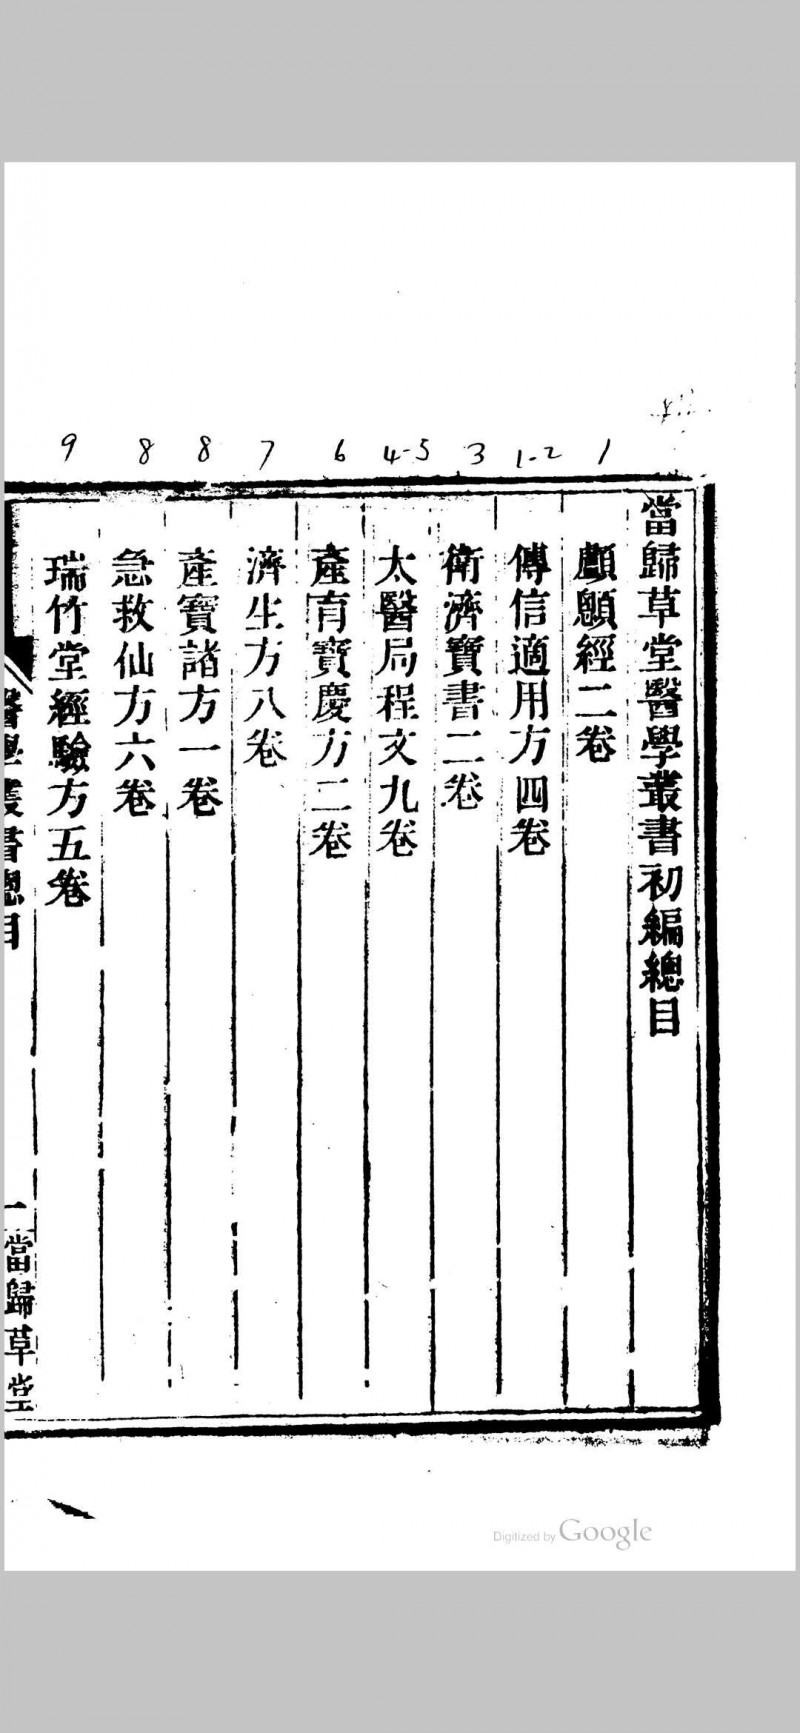 1
1-2
3
4-5
6
7
8
8
9
當歸草堂醫學叢書初編總目
顱顖經二卷
傳信適用方四卷
衛濟寶書二卷
太醫局程文九卷
產育寶慶方二卷
濟生方八卷
產寶諸方一卷
急救仙方六卷
瑞竹堂經驗方五卷
醫學叢書總目
一
當歸草堂
Digitized by Google